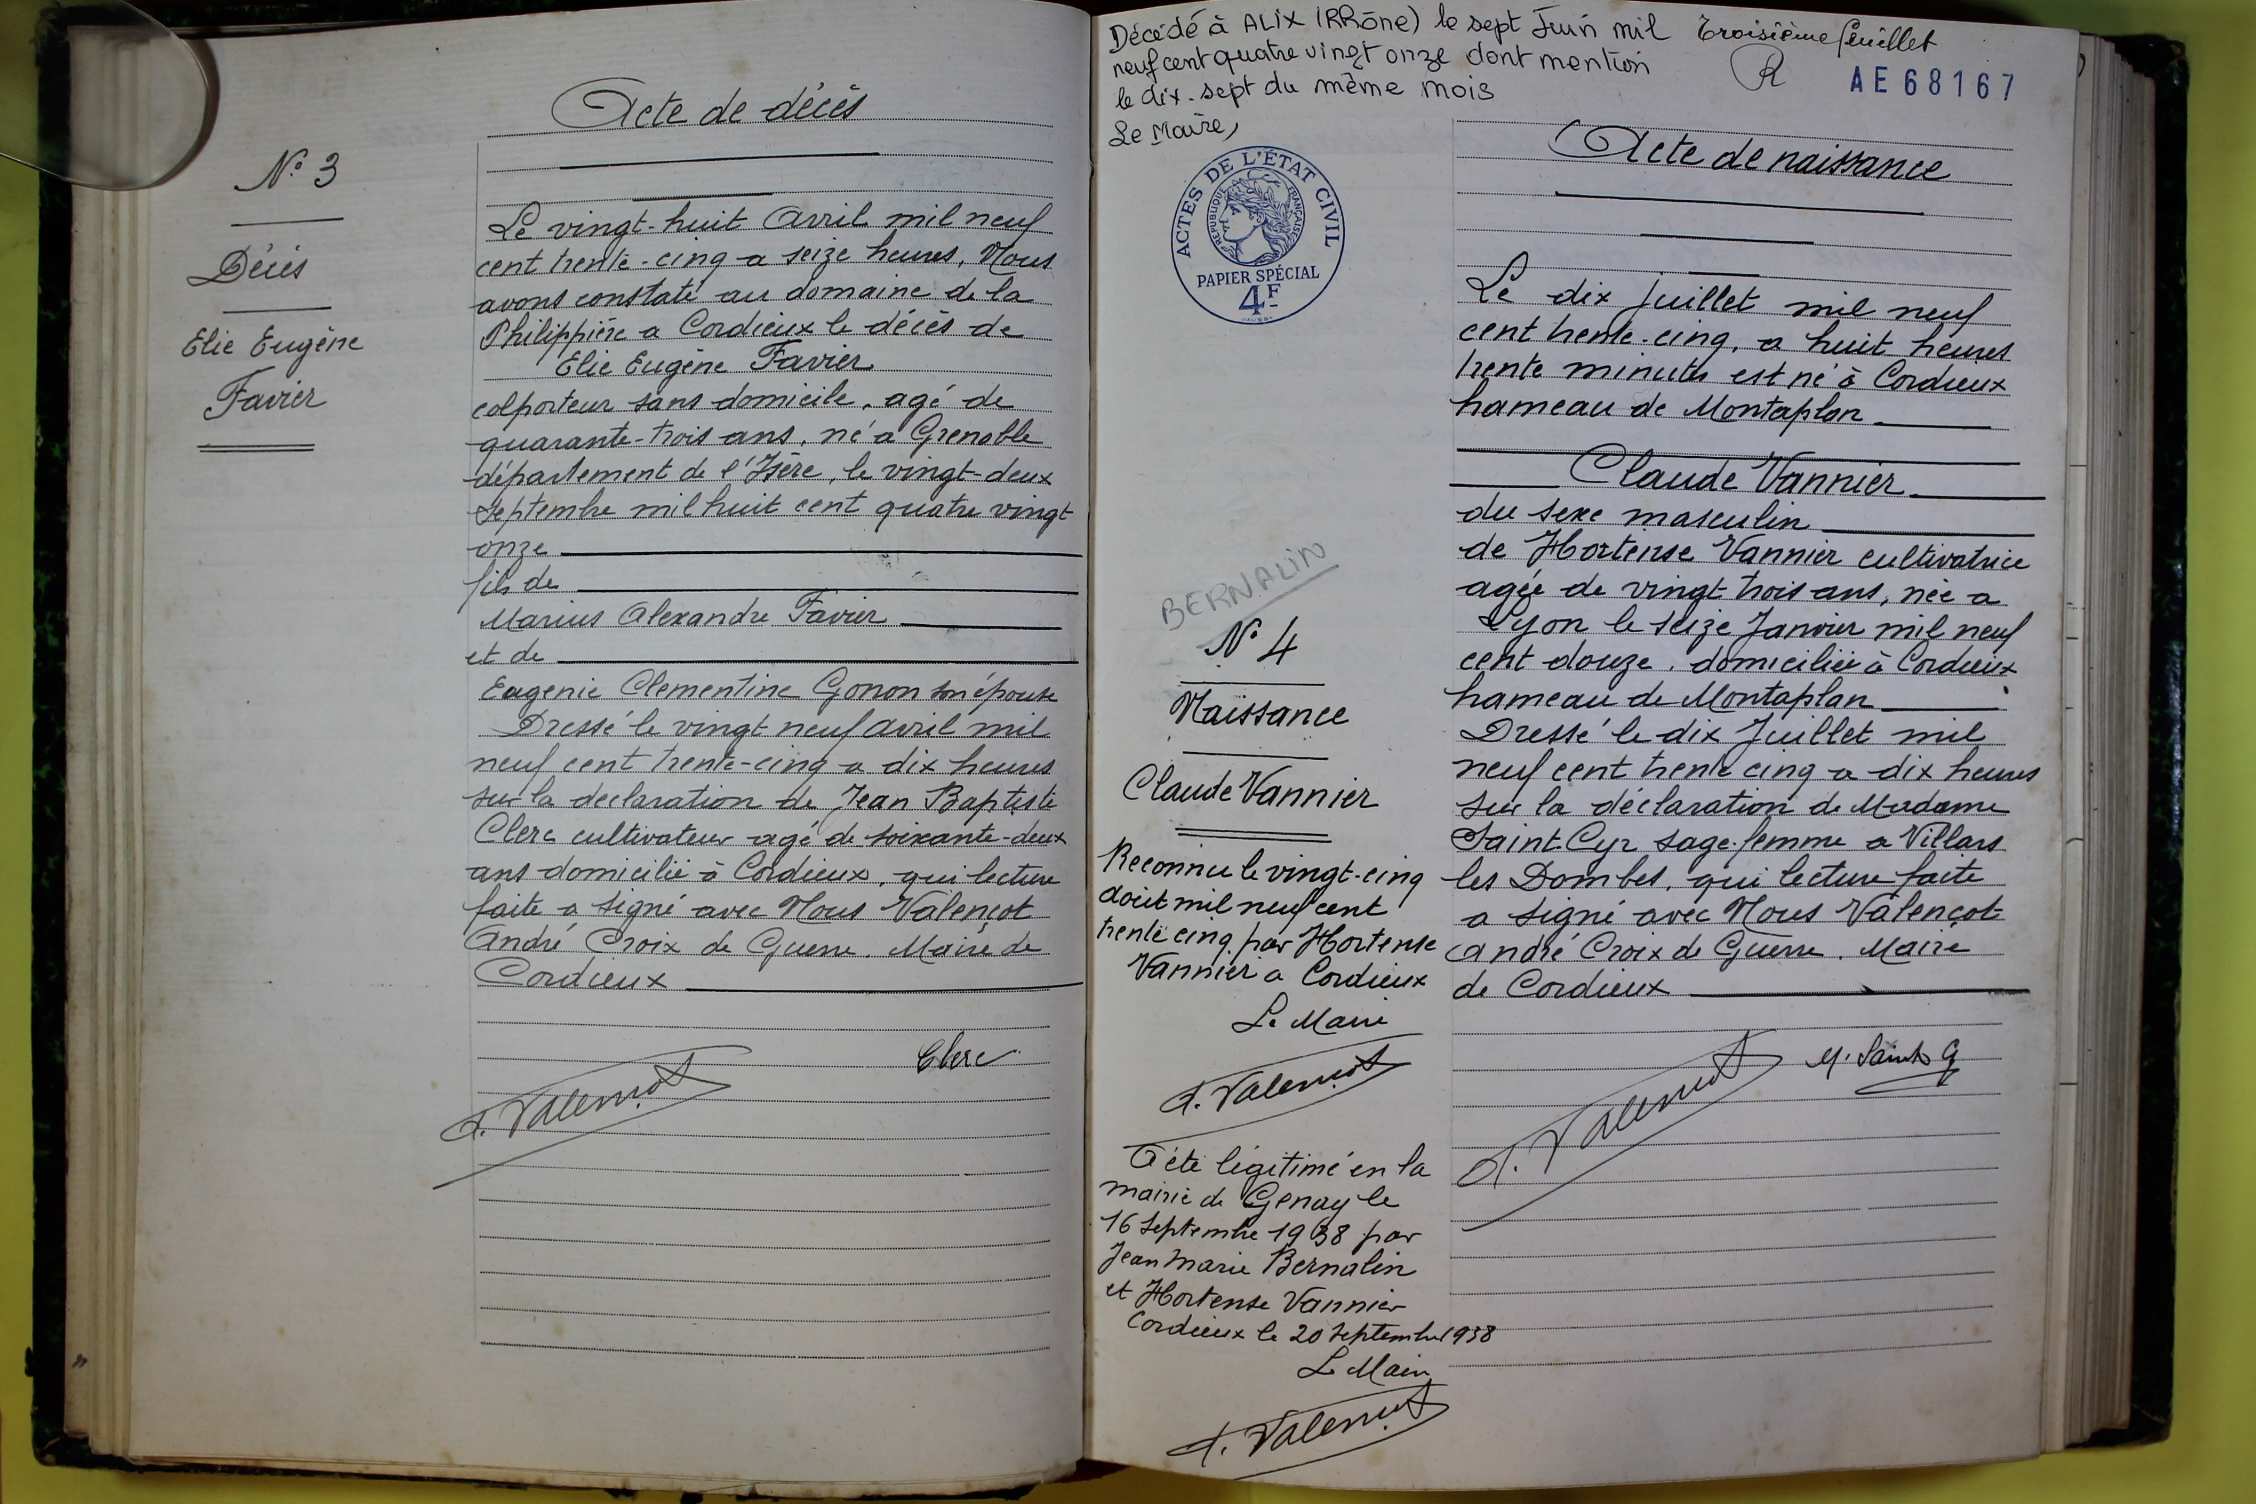 Acte de décès
N° 3
Décès
Elie Eugène
Favier
Le vingt-huit Avril mil neuf
cent trente-cinq a seize heures, Nous
avons constaté au domaine de la
Philippière a Cordieux le décès de
Elie Eugène Favier
colporteur sans domicile, agé de
quarante-trois ans, né a Grenoble
département de l'Isère, le vingt-deux
Septembre mil huit cent quatre vingt
onze
fils de
Marius Alexandre Favier
et de
Eugenie Clementine Gonon son épouse
Dressé le vingt neuf avril mil
neuf cent trente-cinq a dix heures
sur la declaration de Jean Baptiste
Clerc cultivateur agé de soixante-deux
ans domicilié à Cordieux, qui lecture
faite a signé avec Nous Valençot
André Croix de Guerre. Maire de
Cordieux
Clerc
A. Valençot
Décédé à ALIX (RRône) le sept Juin mil
neuf cent quatre vingt onze dont mention
le dix-sept du même mois
Le Maire,
Troisième feuillet
R
AE 68167
ACTES DE L'ÉTAT CIVIL
RÉPUBLIQUE FRANÇAISE
PAPIER SPÉCIAL
4F
BERNALIN
N° 4
Naissance
Claude Vannier
Reconnu le vingt-cinq
août mil neuf cent
trente cinq par Hortense
Vannier a Cordieux
Le Maire
A. Valençot
A été légitimé en la
mairie de Genay le
16 Septembre 1938 par
Jean Marie Bernalin
et Hortense Vannier
Cordieux le 20 Septembre 1938
Le Maire
A. Valençot
Acte de naissance
Le dix juillet mil neuf
cent trente-cinq, a huit heures
trente minutes est né à Cordieux
hameau de Montaplan
Claude Vannier
du sexe masculin
de Hortense Vannier cultivatrice
agée de vingt trois ans, née a
Lyon le seize Janvier mil neuf
cent douze, domiciliée à Cordieux
hameau de Montaplan
Dressé le dix Juillet mil
neuf cent trente cinq a dix heures
sur la déclaration de Madame
Saint Cyr sage-femme a Villars
les Dombes, qui lecture faite
a signé avec Nous Valençot
André Croix de Guerre. Maire
de Cordieux
A. Valençot